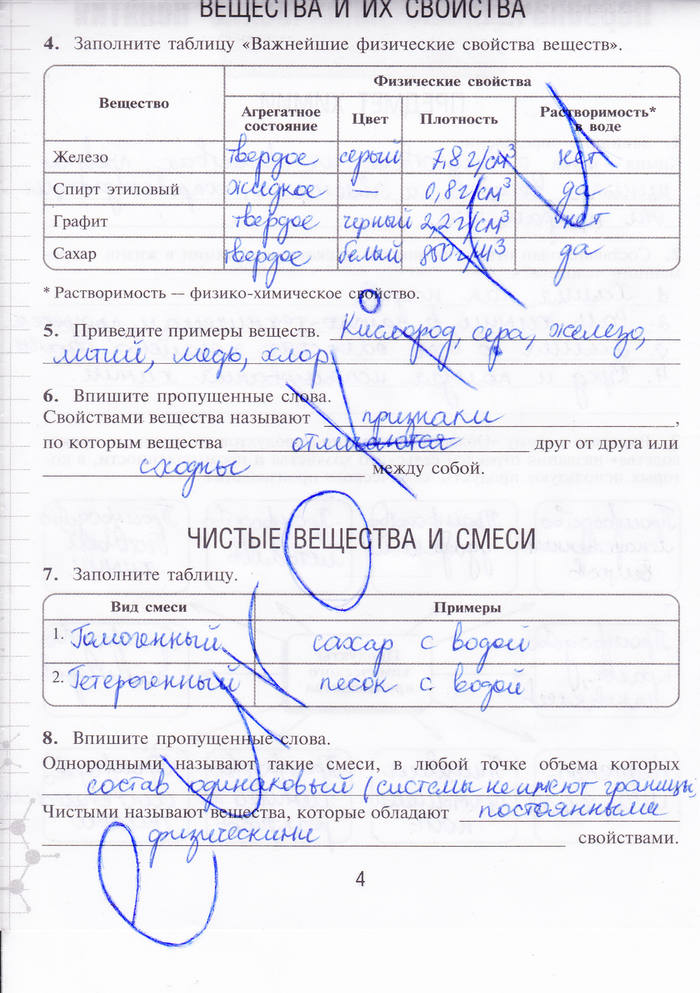 ВЕЩЕСТВА И ИХ СВОЙСТВА
4. Заполните таблицу «Важнейшие физические свойства веществ».
Вещество Физические свойства
Агрегатное состояние Цвет Плотность Растворимость* в воде
Железо твердое серый 7,8 г/см³ нет
Спирт этиловый жидкое — 0,8 г/см³ да
Графит твердое черный 2,2 г/см³ нет
Сахар твердое белый да
* Растворимость — физико-химическое свойство.
5. Приведите примеры веществ. Кислород, сера, железо,
литий, медь, хлор
6. Впишите пропущенные слова.
Свойствами вещества называют признаки,
по которым вещества отличаются друг от друга или
сходны между собой.
ЧИСТЫЕ ВЕЩЕСТВА И СМЕСИ
7. Заполните таблицу.
Вид смеси Примеры
1. Гомогенный сахар с водой
2. Гетерогенный песок с водой
8. Впишите пропущенные слова.
Однородными называют такие смеси, в любой точке объема которых
состав одинаковый (системы не имеют границы
Чистыми называют вещества, которые обладают постоянными
физическими свойствами.
4